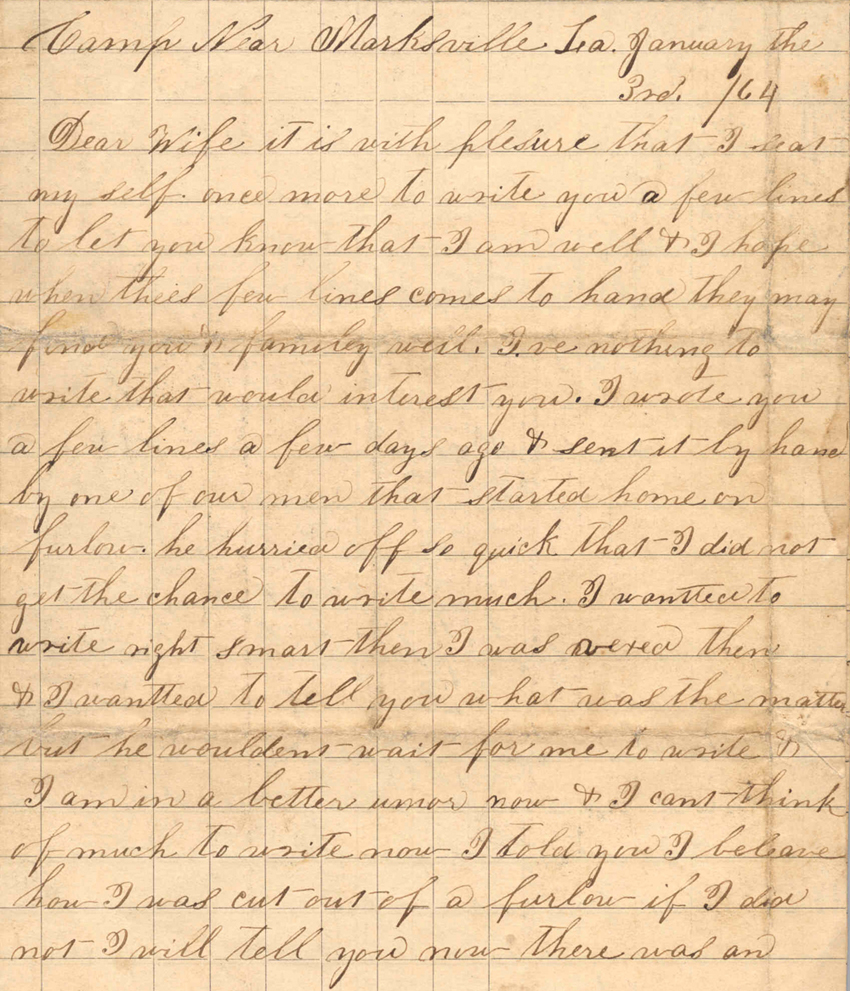 Camp Near Marksville La. January the
3rd. /64
Dear Wife it is with plesure that I seat
my self once more to write you a few lines
to let you know that I am well & I hope
when thees few lines comes to hand they may
find you & familey well. I.ve nothing to
write that would interest you. I wrote you
a few lines a few days ago & sent it by hand
by one of our men that started home on
furlow. he hurried off so quick that I did not
get the chance to write much. I wantted to
write right smart then I was vexed then
& I wantted to tell you what was the matter
but he wouldent wait for me to write &
I am in a better umor now & I cant think
of much to write now I told you I beleave
how I was cut out of a furlow if I did
not I will tell you now there was an